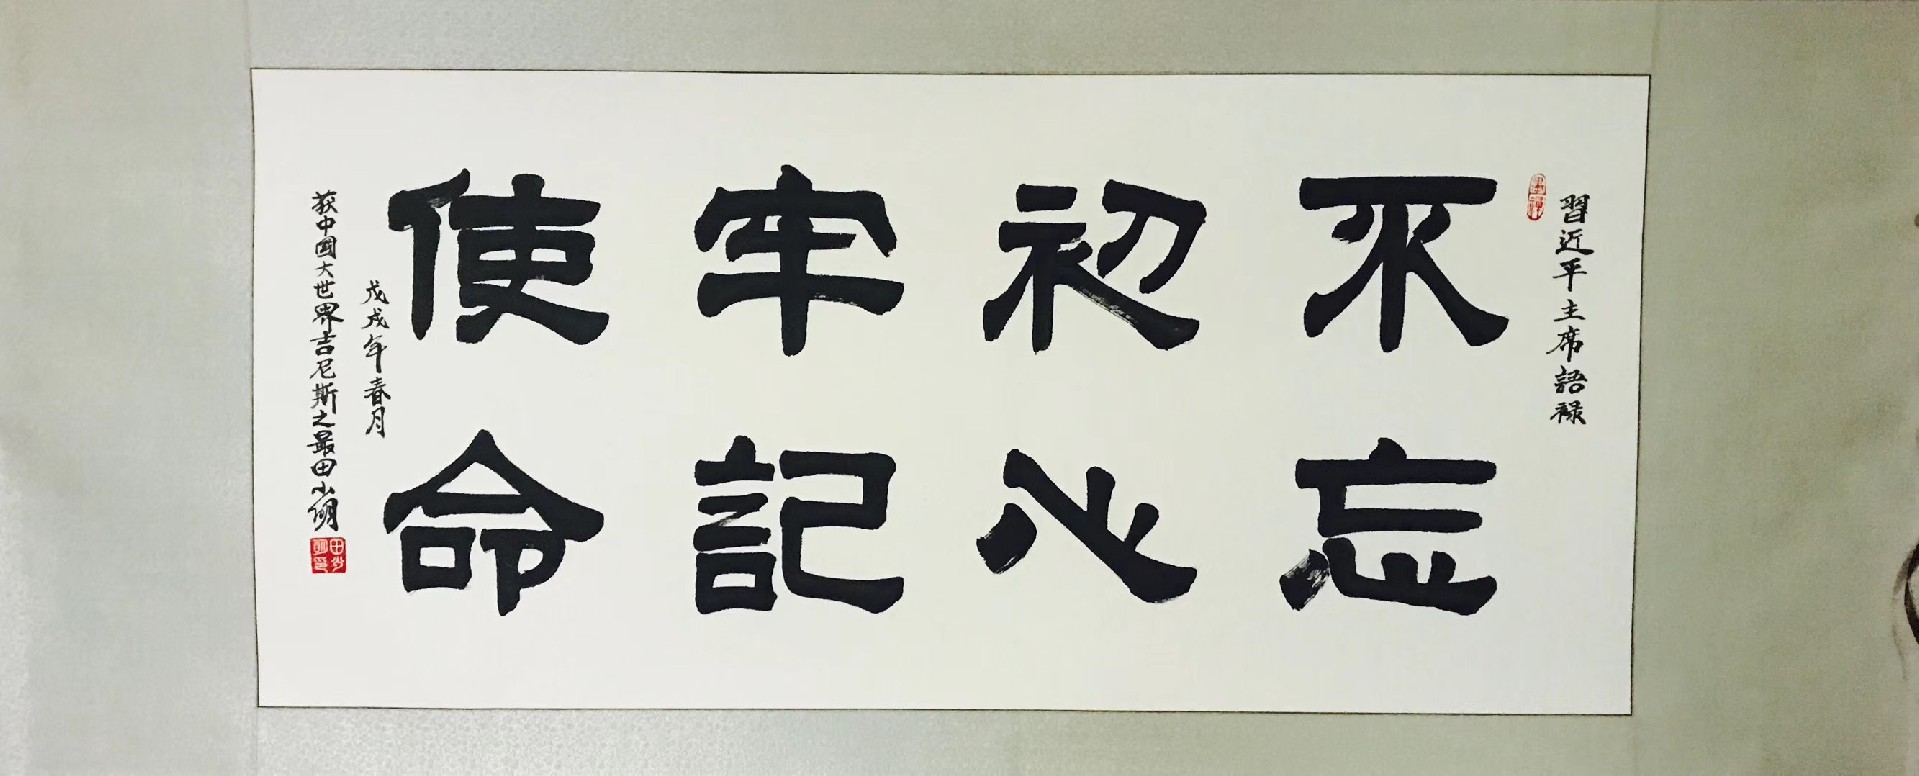 習近平主席語祿
不忘
初心
牢記
使命
戊戌年春月
荻中國大世界吉尼斯之最田小朋